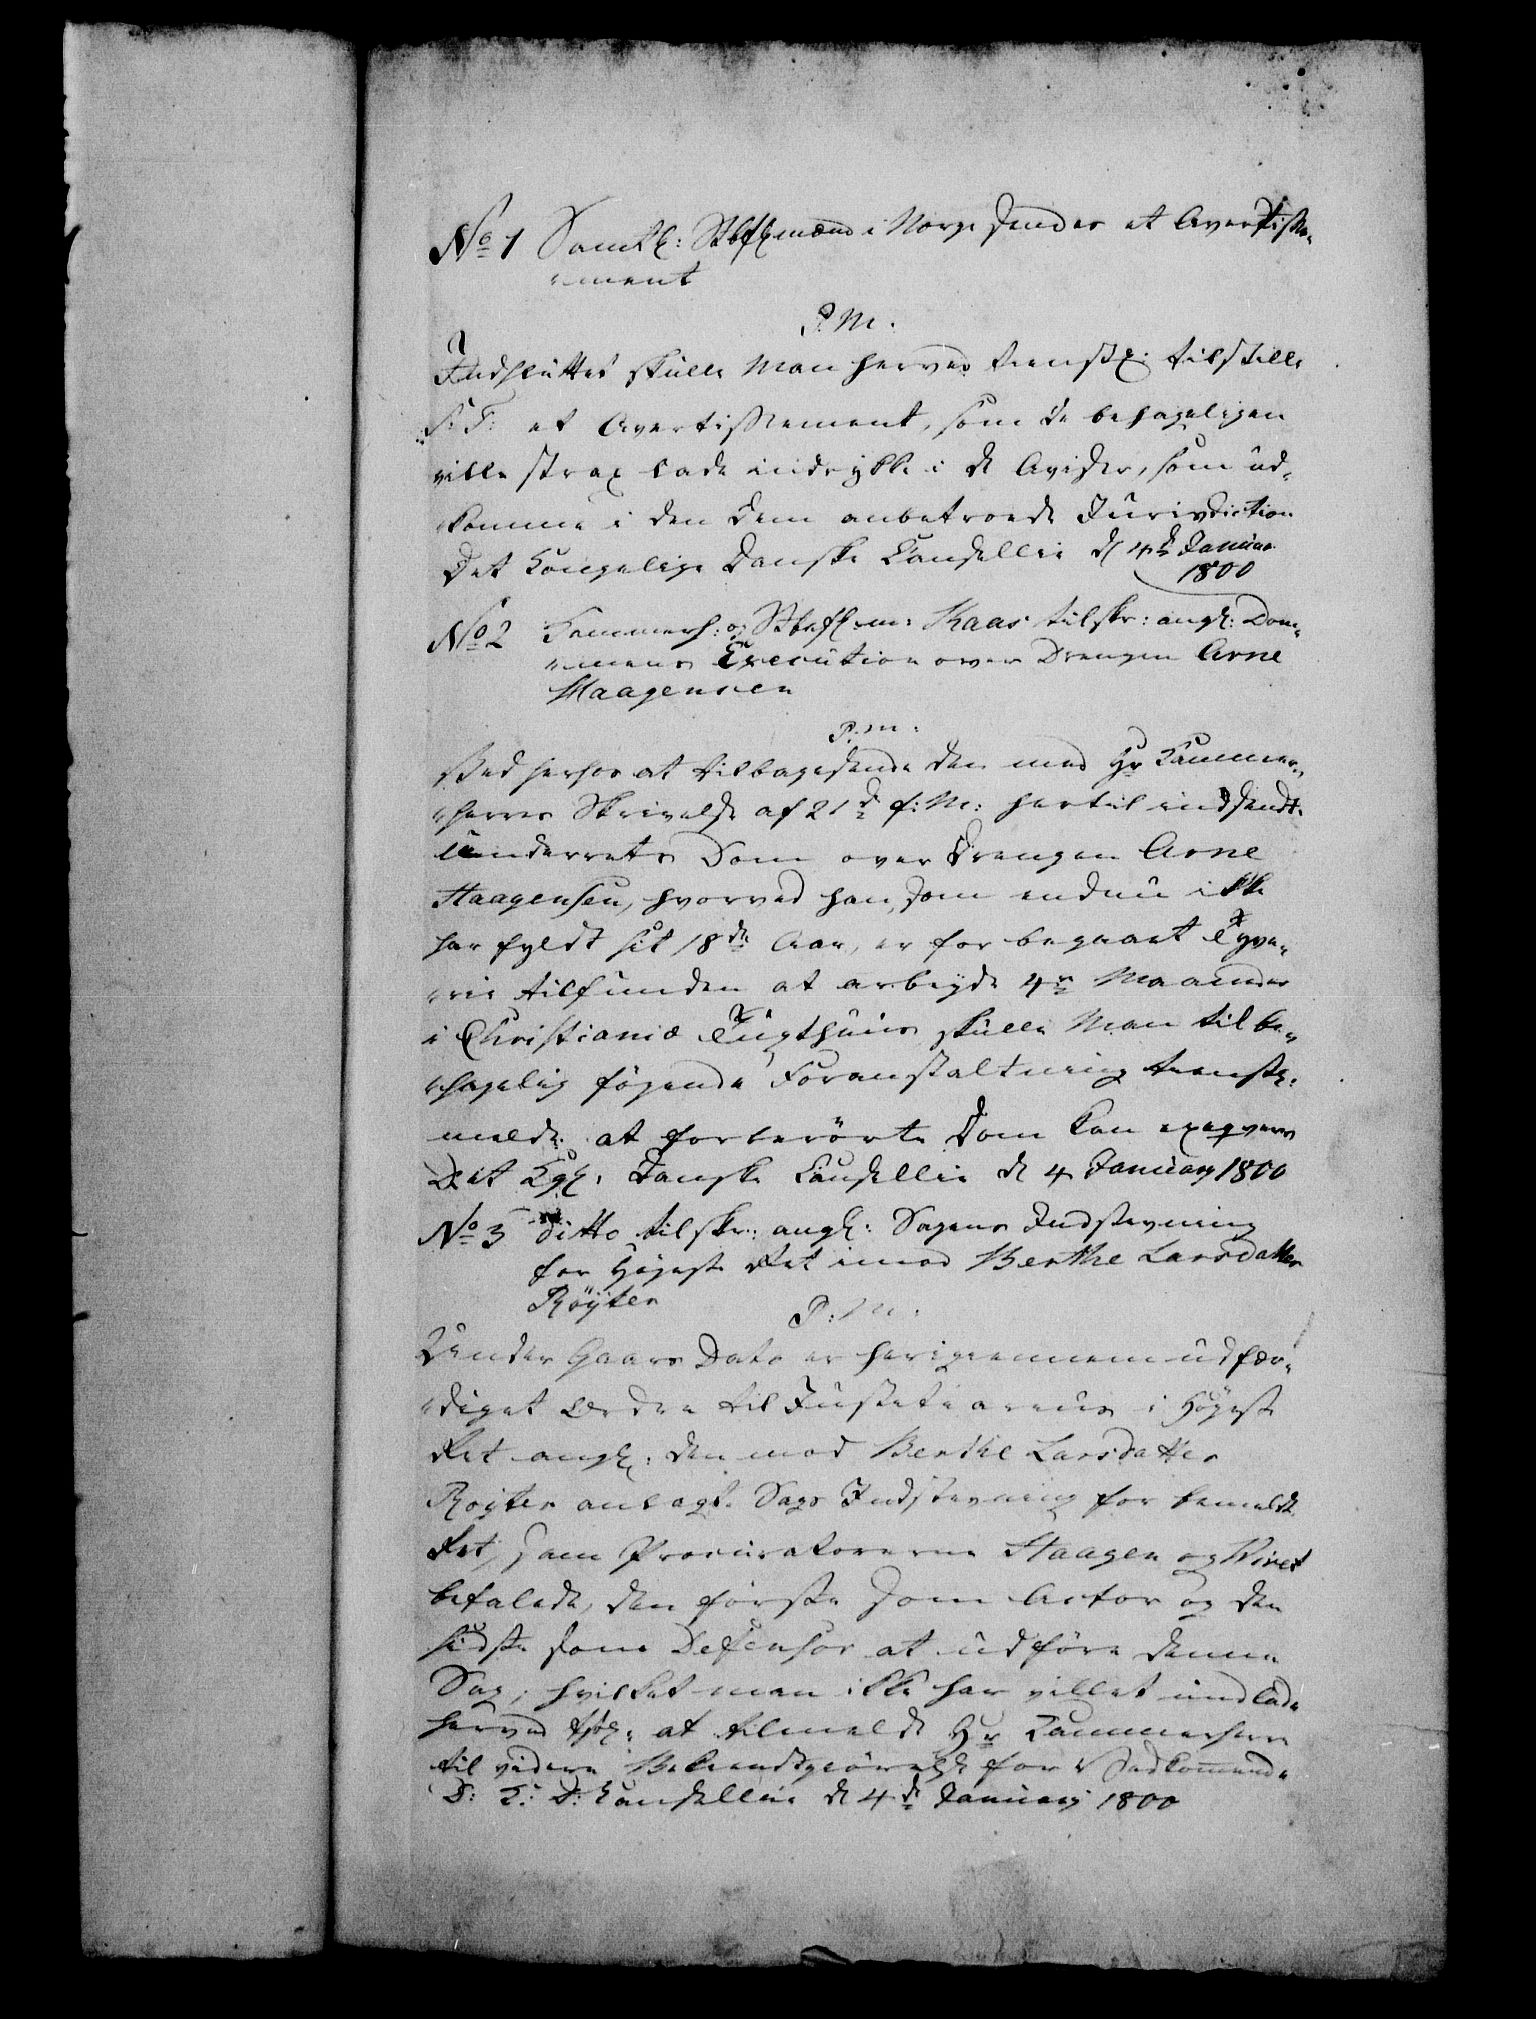 No 1 Samtl: Stbflmænd i Norge sendes et Avertisse¬
¬ment
P.M.
Indsluttet skulle Man herved tienstl: tilstille
S: T: et Avertissement, som De behageligen
ville strax lade indrykke i de Aviser, som ud¬
¬komme i den Dem anbetroede Jurisdiction
Det Kongelige Danske Cancellie d 4de Januar
1800
No 2 Kammerh: og Stbeflm: Kaas tilskr: angl: Dom¬
¬mens Execution over Drengen Arne
Haagensen
P:M:
Ved herhos at tilbagesende den med Hr Kammer¬
¬herres Skrivelse af 21de f: M: hertil indsendte
Underrets Dom over Drengen Arne
Haagensen, hvorved han, som endnu ikke
har fyldt sit 18de Aar, er for begaaet Tyve¬
¬rie tilfunden at arbeyde 4re Maaneder
i Christianiæ Tugthuus skulle Man til be¬
¬hagelig føyende Foranstaltning tienstl:
melde at forberørte Dom kan exeqveres
Det Kgl: Danske Cancellie d 4 Januarj 1800
No 3 ditto tilskr: angl: Sagens Indstevning
for Høyeste Ret imod Berthe Larsdatter
Röyter
P:M:
Under Gaars Dato er herigiennem udfær¬
¬diget Ordre til Justitiarius i Høyeste
Ret angl: den mod Berthe Larsdatter
Royter anlagte Sags Indstevning for bemeldte
Ret, samt Procuratorerne Haagen og
befalede, den første som Actor og den
sidste som Defensor at udføre denne
Sag; hvilket man ikke har villet undlade
herved tjstl: at tilmelde Hr Kammerherre
til videre Bekiendtgiørelse for Vedkommende
D: K: D: Cancellie d 4de Januarj 1800